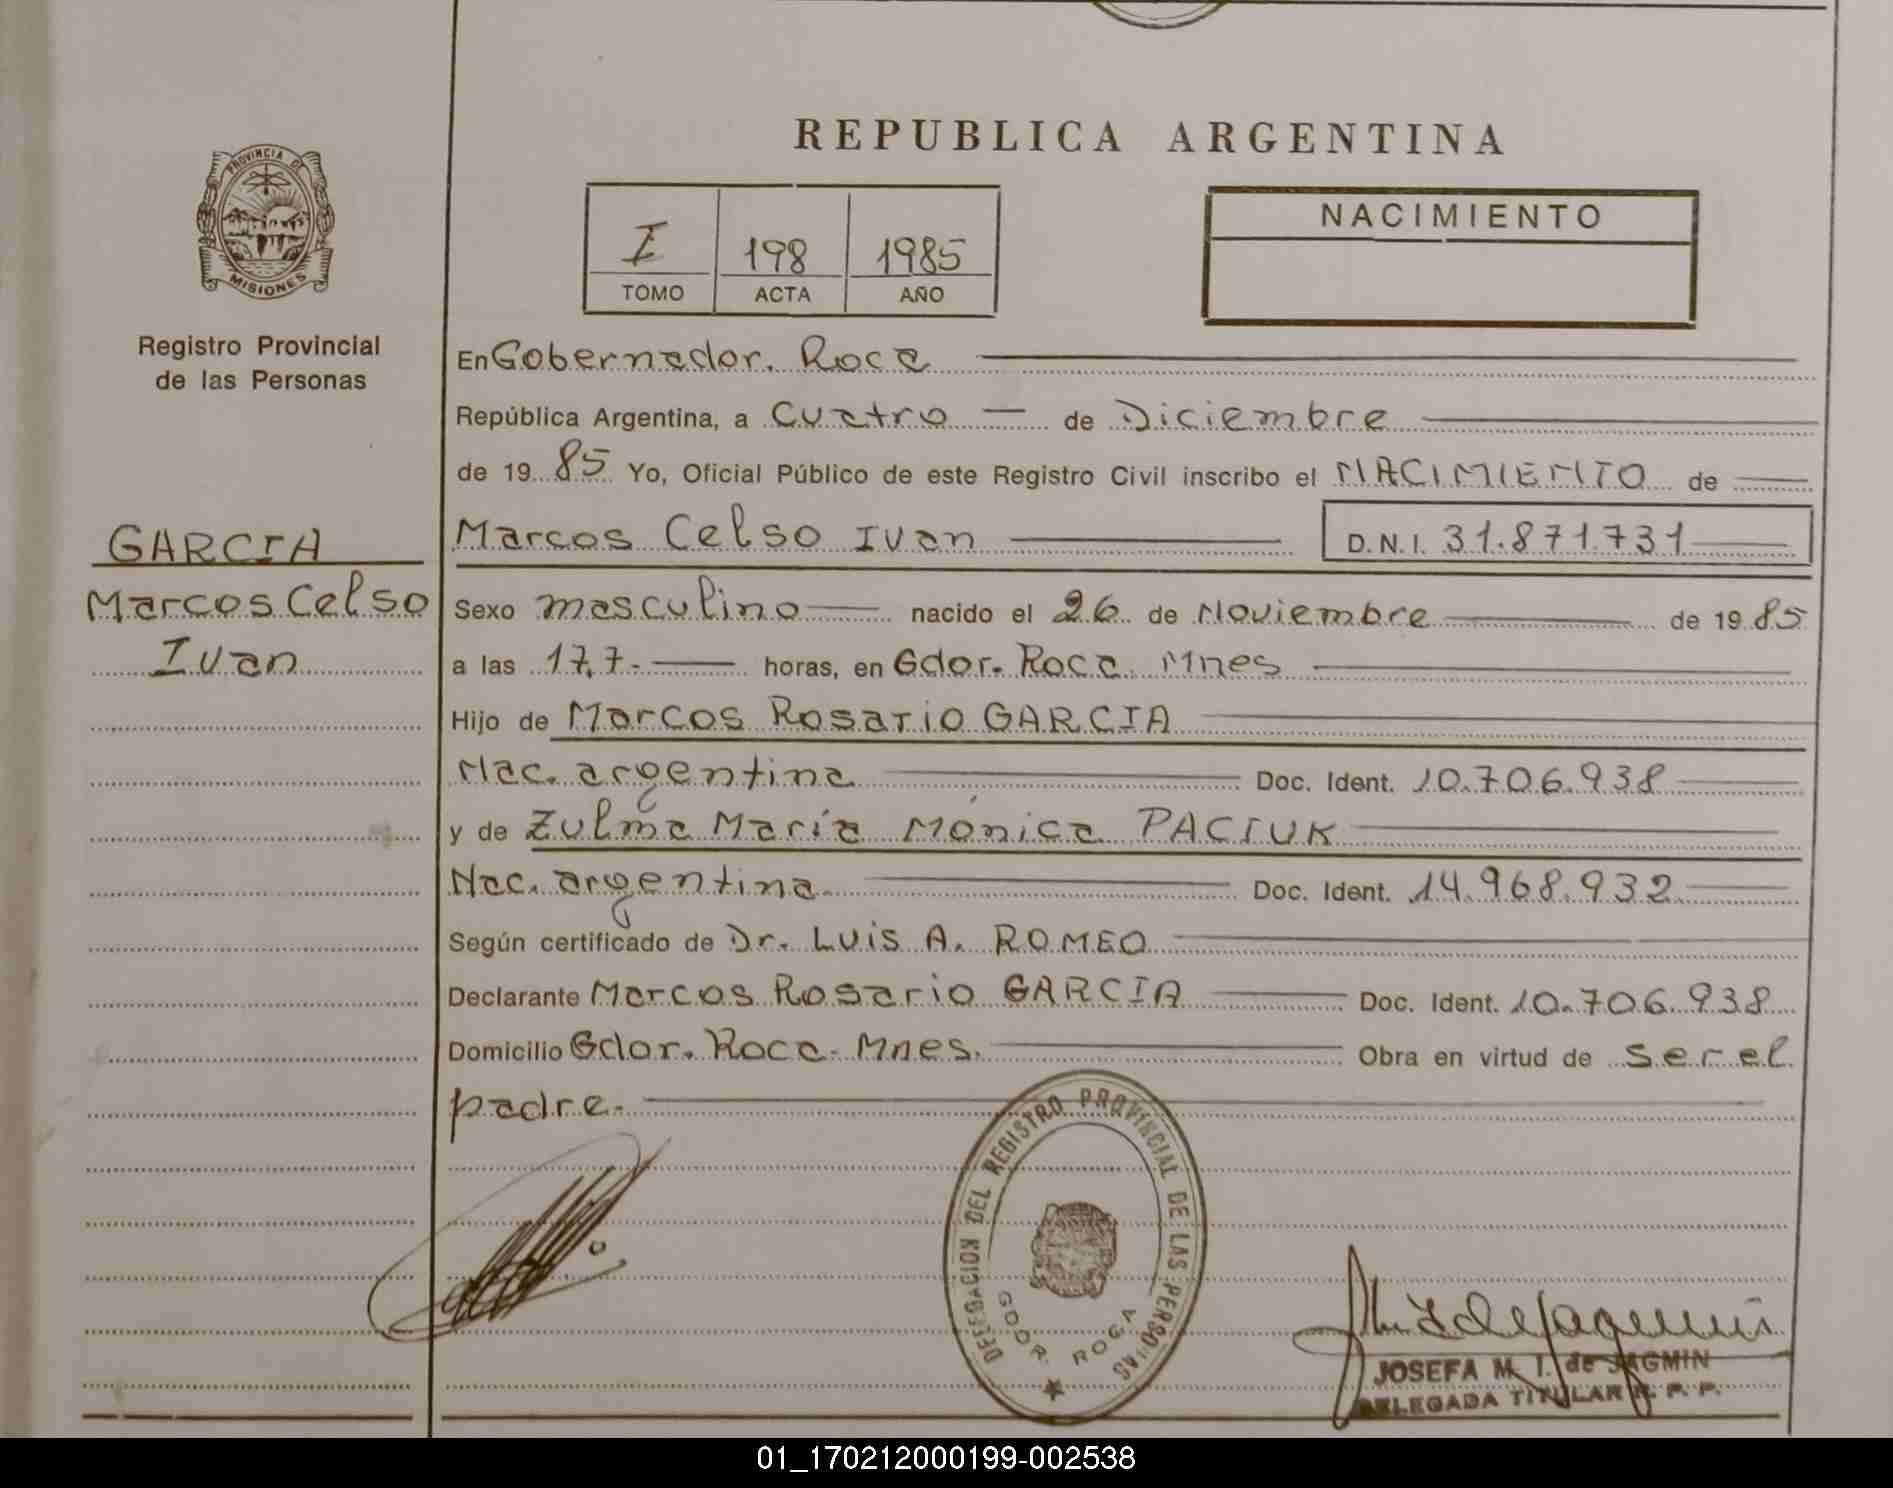 REPUBLICA ARGENTINA
PROVINCIA DE
MISIONES
Registro Provincial
de las Personas
I 198 1985
TOMO ACTA AÑO
NACIMIENTO
En Gobernador. Roca
República Argentina, a Cuatro — de Diciembre
de 19 85 Yo, Oficial Público de este Registro Civil inscribo el NACIMIENTO de
GARCIA
Marcos Celso
Ivan
Marcos Celso Ivan D.N.I. 31.871.731
Sexo masculino nacido el 26 de Noviembre de 19 85
a las 17,7.- horas, en Gdor. Roca. Mnes
Hijo de Marcos Rosario GARCIA
Nac. argentina Doc. Ident. 10.706.938
y de Zulma María Mónica PACIUK
Nac. argentina Doc. Ident. 14.968.932
Según certificado de Dr. Luis A. ROMEO
Declarante Marcos Rosario GARCIA Doc. Ident. 10.706.938
Domicilio Gdor. Roca. Mnes. Obra en virtud de ser el
padre.
DELEGACION DEL REGISTRO PROVINCIAL DE LAS PERSONAS
GODR. ROCA
JOSEFA M. I. de JAGMIN
DELEGADA TITULAR R. P. P.
01_170212000199-002538